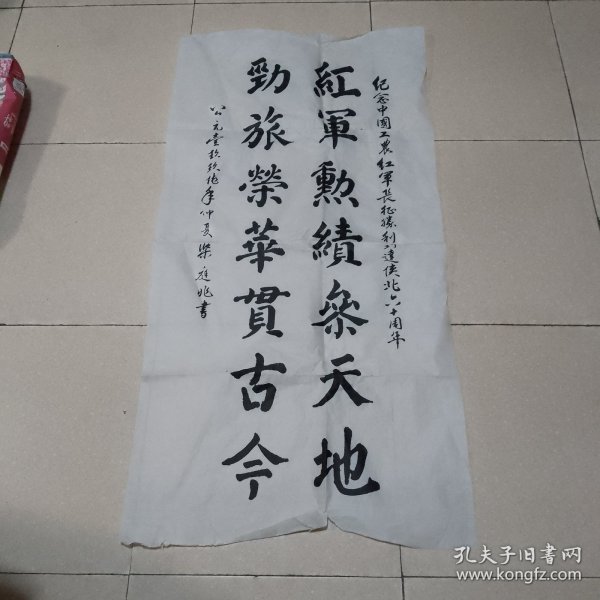 紀念中國工農紅軍長征勝利到達陕北六十周年
紅軍勳績叅天地
勁旅榮華貫古今
公元壹玖玖 年仲夏梁庭兆書
孔夫子旧书网
www.kongfz.com